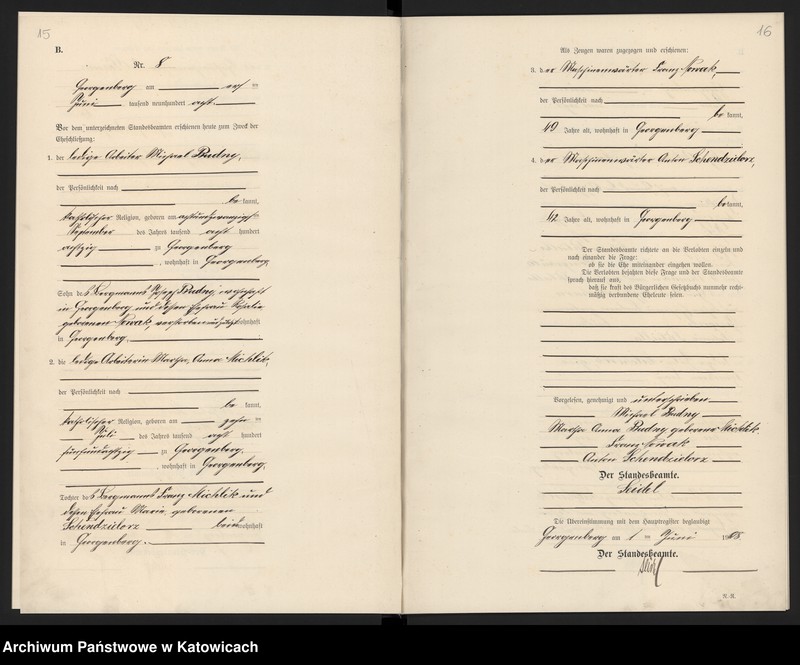 15
B.
Nr. 8
Georgenberg am ersten
Juni tausend neunhundert acht
Vor dem unterzeichneten Standesbeamten erschienen heute zum Zweck der
Eheschließung:
1. der ledige Arbeiter Michael Budny,
der Persönlichkeit nach
be kannt,
katholischer Religion, geboren am achtundzwanzigsten
September des Jahres tausend acht hundert
achtzig zu Georgenberg
, wohnhaft in Georgenberg,
Sohn des Bergmanns Josef Budny, wohnhaft
in Georgenberg und dessen Ehefrau
geborenen Nowak, verstorben und zuletzt wohnhaft
in Georgenberg.
2. die ledige Arbeiterin Martha Anna Michlik,
der Persönlichkeit nach
be kannt,
katholischer Religion, geboren am
Juli des Jahres tausend acht hundert
fünfundachtzig zu Georgenberg,
, wohnhaft in Georgenberg,
Tochter des Bergmanns Franz Michlik und
dessen Ehefrau Marie geborenen
Schendzielorz beide wohnhaft
in Georgenberg.
16
Als Zeugen waren zugezogen und erschienen:
3. der Maschinenwärter Franz Nowak,
der Persönlichkeit nach
be kannt,
49 Jahre alt, wohnhaft in Georgenberg
4. der Maschinenwärter Anton Schendzielorz,
der Persönlichkeit nach
be kannt,
42 Jahre alt, wohnhaft in Georgenberg
Der Standesbeamte richtete an die Verlobten einzeln und
nach einander die Frage:
ob sie die Ehe miteinander eingehen wollen.
Die Verlobten bejahten diese Frage und der Standesbeamte
sprach hierauf aus,
daß sie kraft des Bürgerlichen Gesetzbuchs nunmehr recht-
mäßig verbundene Eheleute seien.
Vorgelesen, genehmigt und unterschrieben
Michael Budny
Martha Anna Budny geborene Michlik.
Franz Nowak
Anton Schendzielorz
Der Standesbeamte.
Seidel
Die Übereinstimmung mit dem Hauptregister beglaubigt
Georgenberg am 1 ten Juni 1908.
Der Standesbeamte.
Archiwum Państwowe w Katowicach